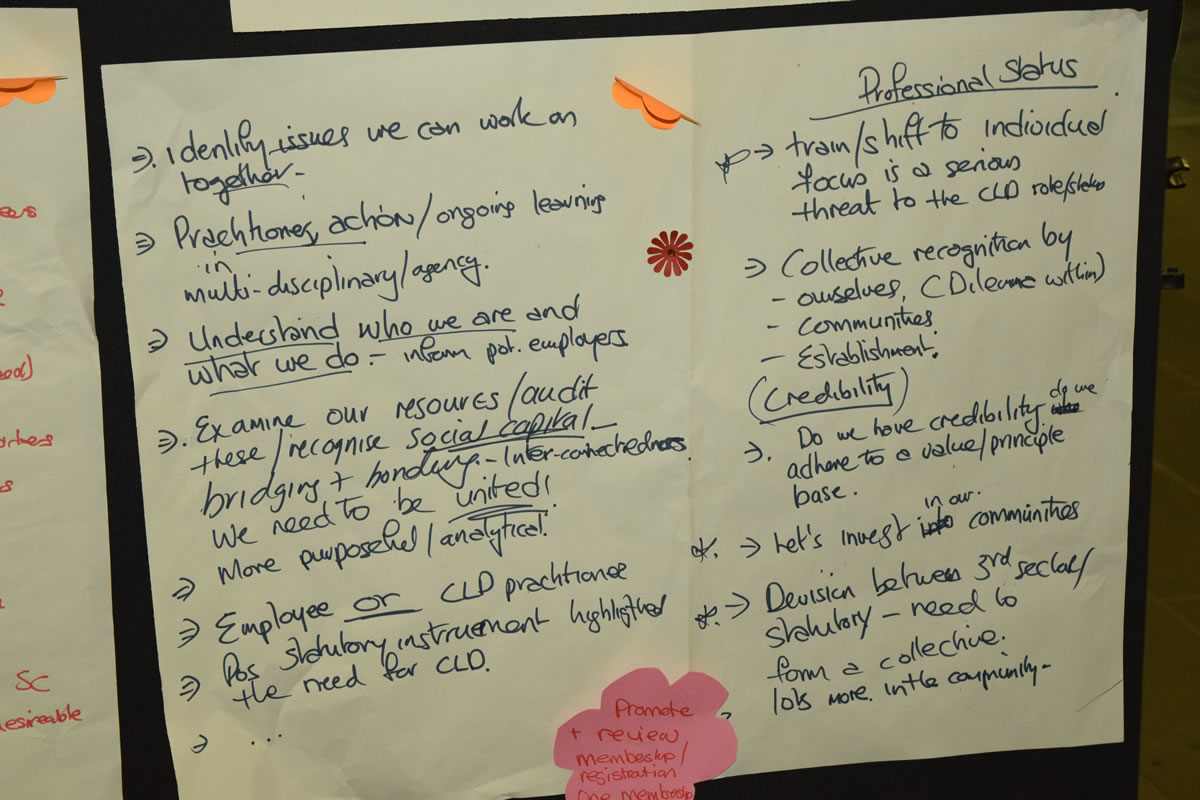 ⇒. Identify issues we can work on
together-
⇒ Practitioner, action/ongoing learning
in
multi-disciplinary/agency.
⇒ Understand who we are and
what we do - inform pot. employers
⇒. Examine our resources/audit
these/recognise social capital -
bridging + bonding - Inter-connectedness.
We need to be united!
⇒ More purposeful/analytical.
⇒ Employee or CLD practitioner
⇒ Pos statutory instrument highlighted
the need for CLD.
⇒ ...
Professional Status
⇒ train/shift to individual
focus is a serious
threat to the CLD role/status
⇒ Collective recognition by
- ourselves, within)
- communities.
- Establishment.
(Credibility)
⇒. Do we have credibility do we
adhere to a value/principle
base.
*. → Let's invest in our communities
*. → Devision between 3rd sector/
statutory - need to
form a collective.
lots more. in the community-
Promote
+ review
membership/
registration
one membership
ed)
s
SC
esireable